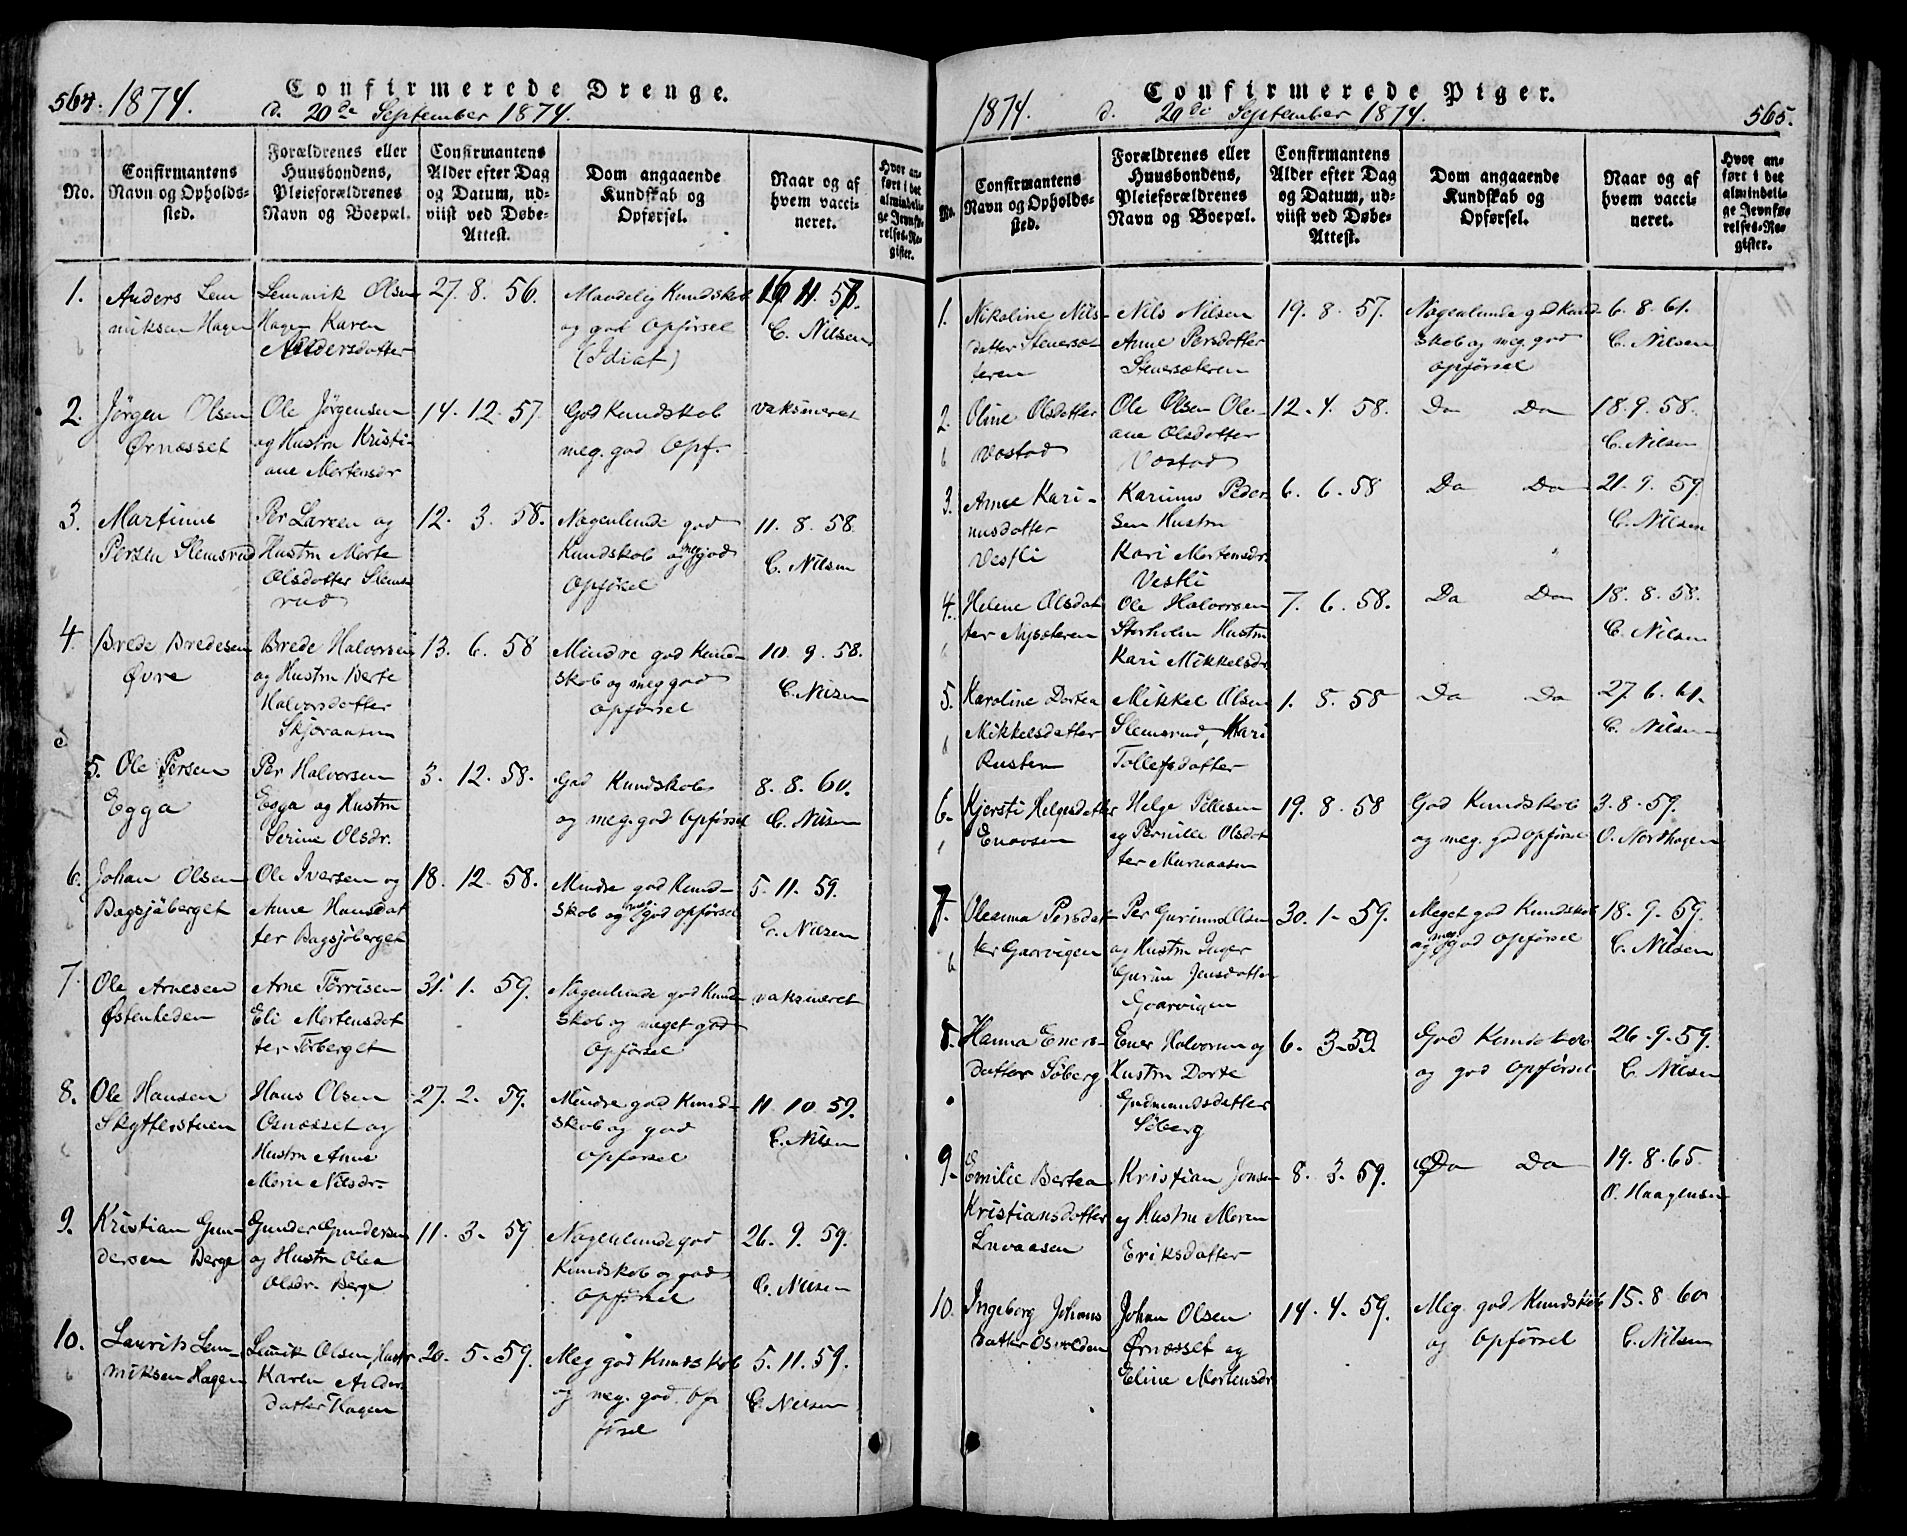 564.
1874.
Confirmerede Drenge.
d. 20de September 1874.
No.
Confirmantens Navn og Opholds-sted.
Forældrenes eller Huusbondens, Pleieforældrenes Navn og Boepæl.
Confirmantens Alder efter Dag og Datum, ud-viist ved Døbe-Attest.
Dom angaaende Kundskab og Opførsel.
Naar og af hvem vacci-neret.
Hvor an-ført i det almindeli-ge Jevnfø-relses-Re-gister.
1. Anders Lem 27. 8. 56.
miksen Hagen
Lemmik Olsen
Hagen Karen
Andersdatter
Maadelig Kundskab
og god Opførsel
(Idiot)
C. Nilsen
2. Jørgen Olsen
Ørnæsset
Ole Jørgensen
og Hustru Kristi-
ane Mortensdr
14. 12. 57.
God Kundskab
meg. god Opf.
vaksineret
3. Martinus
Persen Slemsrud
Per Larsen og
Hustru Marte
Olsdatter Slems
rud
12. 3. 58.
Nogenlunde god
Kundskab og meg god
Opførsel
11. 8. 58.
C. Nilsen
4. Brede Bredesen
Øvre
Brede Halvorsen
og Hustru Berte
Halvorsdatter
Skjøraasen
13. 6. 58
Mindre god Kund-
skab og meg god
Opførsel
10. 9. 58.
C. Nilsen
5. Ole Persen
Egga
Per Halvorsen
Egga og Hustru
Serine Olsdr.
3. 12. 58.
God Kundskab
og meg. god Opførsel
8. 8. 60.
C. Nilsen
6. Johan Olsen
Bagsjøberget
Ole Iversen og
Anne Hansdat
ter Bagsjøberget
18. 12. 58.
Mindre god Kund-
skab og meg. god Opførsel
5. 11. 59.
C. Nilsen
7. Ole Arnesen
Østenheden
Arne Tørrisen
Eli Mortensdat
ter Tørberget
31. 1. 59.
Nogenlunde god Kund
skab og meget god
Opførsel
vaksineret
8. Ole Hansen
Skytterstuen
Hans Olsen
Ørnæsset og
Hustru Anne
Marie Nilsdr.
27. 2. 59.
Mindre god Kund-
skab og god
Opførsel
11. 10. 59.
C. Nilsen
9. Kristian Gun-
dersen Berge
Gunder Gundersen
og Hustru Olea
Olsdr. Berge
11. 3. 59
Nogenlunde god
Kundskab og god
Opførsel
26. 9. 59.
C. Nilsen
10. Laurits Lem-
miksen Hagen
Lemik Olsen, Hustr
Karen Anders
datter Hagen
20. 5. 59.
Meg god Kundskab
og meg. god. Op
førsel
5. 11. 59.
C. Nilsen
1874.
Confirmerede Piger.
d. 20de September 1874.
565.
No.
Confirmantens Navn og Opholds-sted.
Forældrenes eller Huusbondens, Pleieforældrenes Navn og Boepæl.
Confirmantens Alder efter Dag og Datum, ud-viist ved Døbe-Attest.
Dom angaaende Kundskab og Opførsel.
Naar og af hvem vacci-neret.
Hvor an-ført i det almindeli-ge Jevnfø-relses-Re-gister.
1. Nikoline Nils-
datter Stenersæ-
teren
Nils Nilsen
Anne Persdatter
Stenersæteren
19. 8. 57.
Nogenlunde god Kund-
skab og meg. god
Opførsel
6. 8. 61.
C. Nilsen
2. Oline Olsdatter
Vestad
Ole Olsen Ole-
ane Olsdatter
Vestad
12. 4. 58.
Do Do
18. 9. 58.
C. Nilsen
3. Anne Kari-
nusdatter
Vestli
Karinus Peder
sen Hustru
Kari Mortensdr.
Vestli
6. 6. 58
Do Do
21. 9. 59.
C. Nilsen
4. Helene Olsdat
ter Nysæteren
Ole Halvorsen
Storholm Hustru
Kari Mikkelsdr
7. 6. 58.
Do Do
18. 8. 58.
C. Nilsen
5. Karoline Dortea
Mikkelsdatter
Rusten
Mikkel Olsen
Slemsrud, Kari
Tollefsdatter
1. 8. 58
Do Do
27. 6. 61.
C. Nilsen
6. Kjersti Helgesdatter
Enaasen
Helge Pellesen
og Pernille Olsdat
ter Muraasen
19. 8. 58
God Kundskab
og meg. god Opførsel
3. 8. 59.
O. Nordhagen
7. Oleanna Persdat-
ter Gjærvigen
Per Gurinus Olsen
og Hustru Inger
Gurine Jensdatter
Gjærvigen
30. 1. 59.
Meget god Kundskab
og meg. god Opførsel
18. 9. 59.
C. Nilsen
8. Hanna Eners-
datter Søberg
Ener Halvorsen og
Hustru Dorte
Gudmundsdatter
Søberg
6. 3. 59.
God Kundskab
og god Opførsel
26. 9. 59.
C. Nilsen
9. Emilie Bertea
Kristiansdatter
Kristian Jonsen
og Hustru Maren
Eriksdatter
8. 3. 59.
Do Do
19. 8. 65.
O. Haagensen
10. Ingeborg Johans
datter Osvolden
Johan Olsen
Ørnæsset og
Eline Mortensdr
14. 4. 59.
Meg. god Kundskab
og Opførsel
15. 8. 60
C. Nilsen